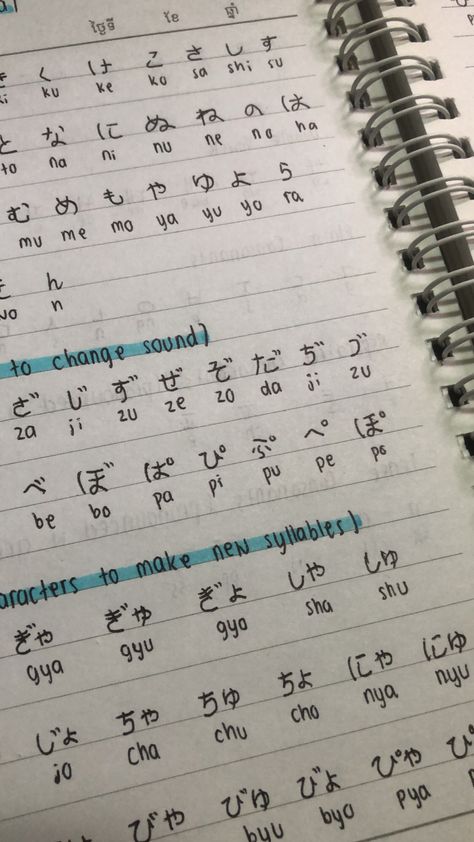 く け こ さ し す
ki ku ke ko sa shi su
と な に ぬ ね の は
to na ni nu ne no ha
む め も や ゆ よ ら
mu me mo ya yu yo ra
ん
wo n
to change sound)
ざ じ ず ぜ ぞ だ ぢ づ
za ji zu ze zo da ji zu
べ ぼ ぱ ぴ ぷ ぺ ぽ
be bo pa pi pu pe po
aracters to make new syllables)
ぎゃ ぎゅ ぎょ しゃ しゅ
gya gyu gyo sha shu
じょ ちゃ ちゅ ちょ にゃ にゅ
jo cha chu cho nya nyu
びゃ びゅ びょ ぴゃ
byu byo pya